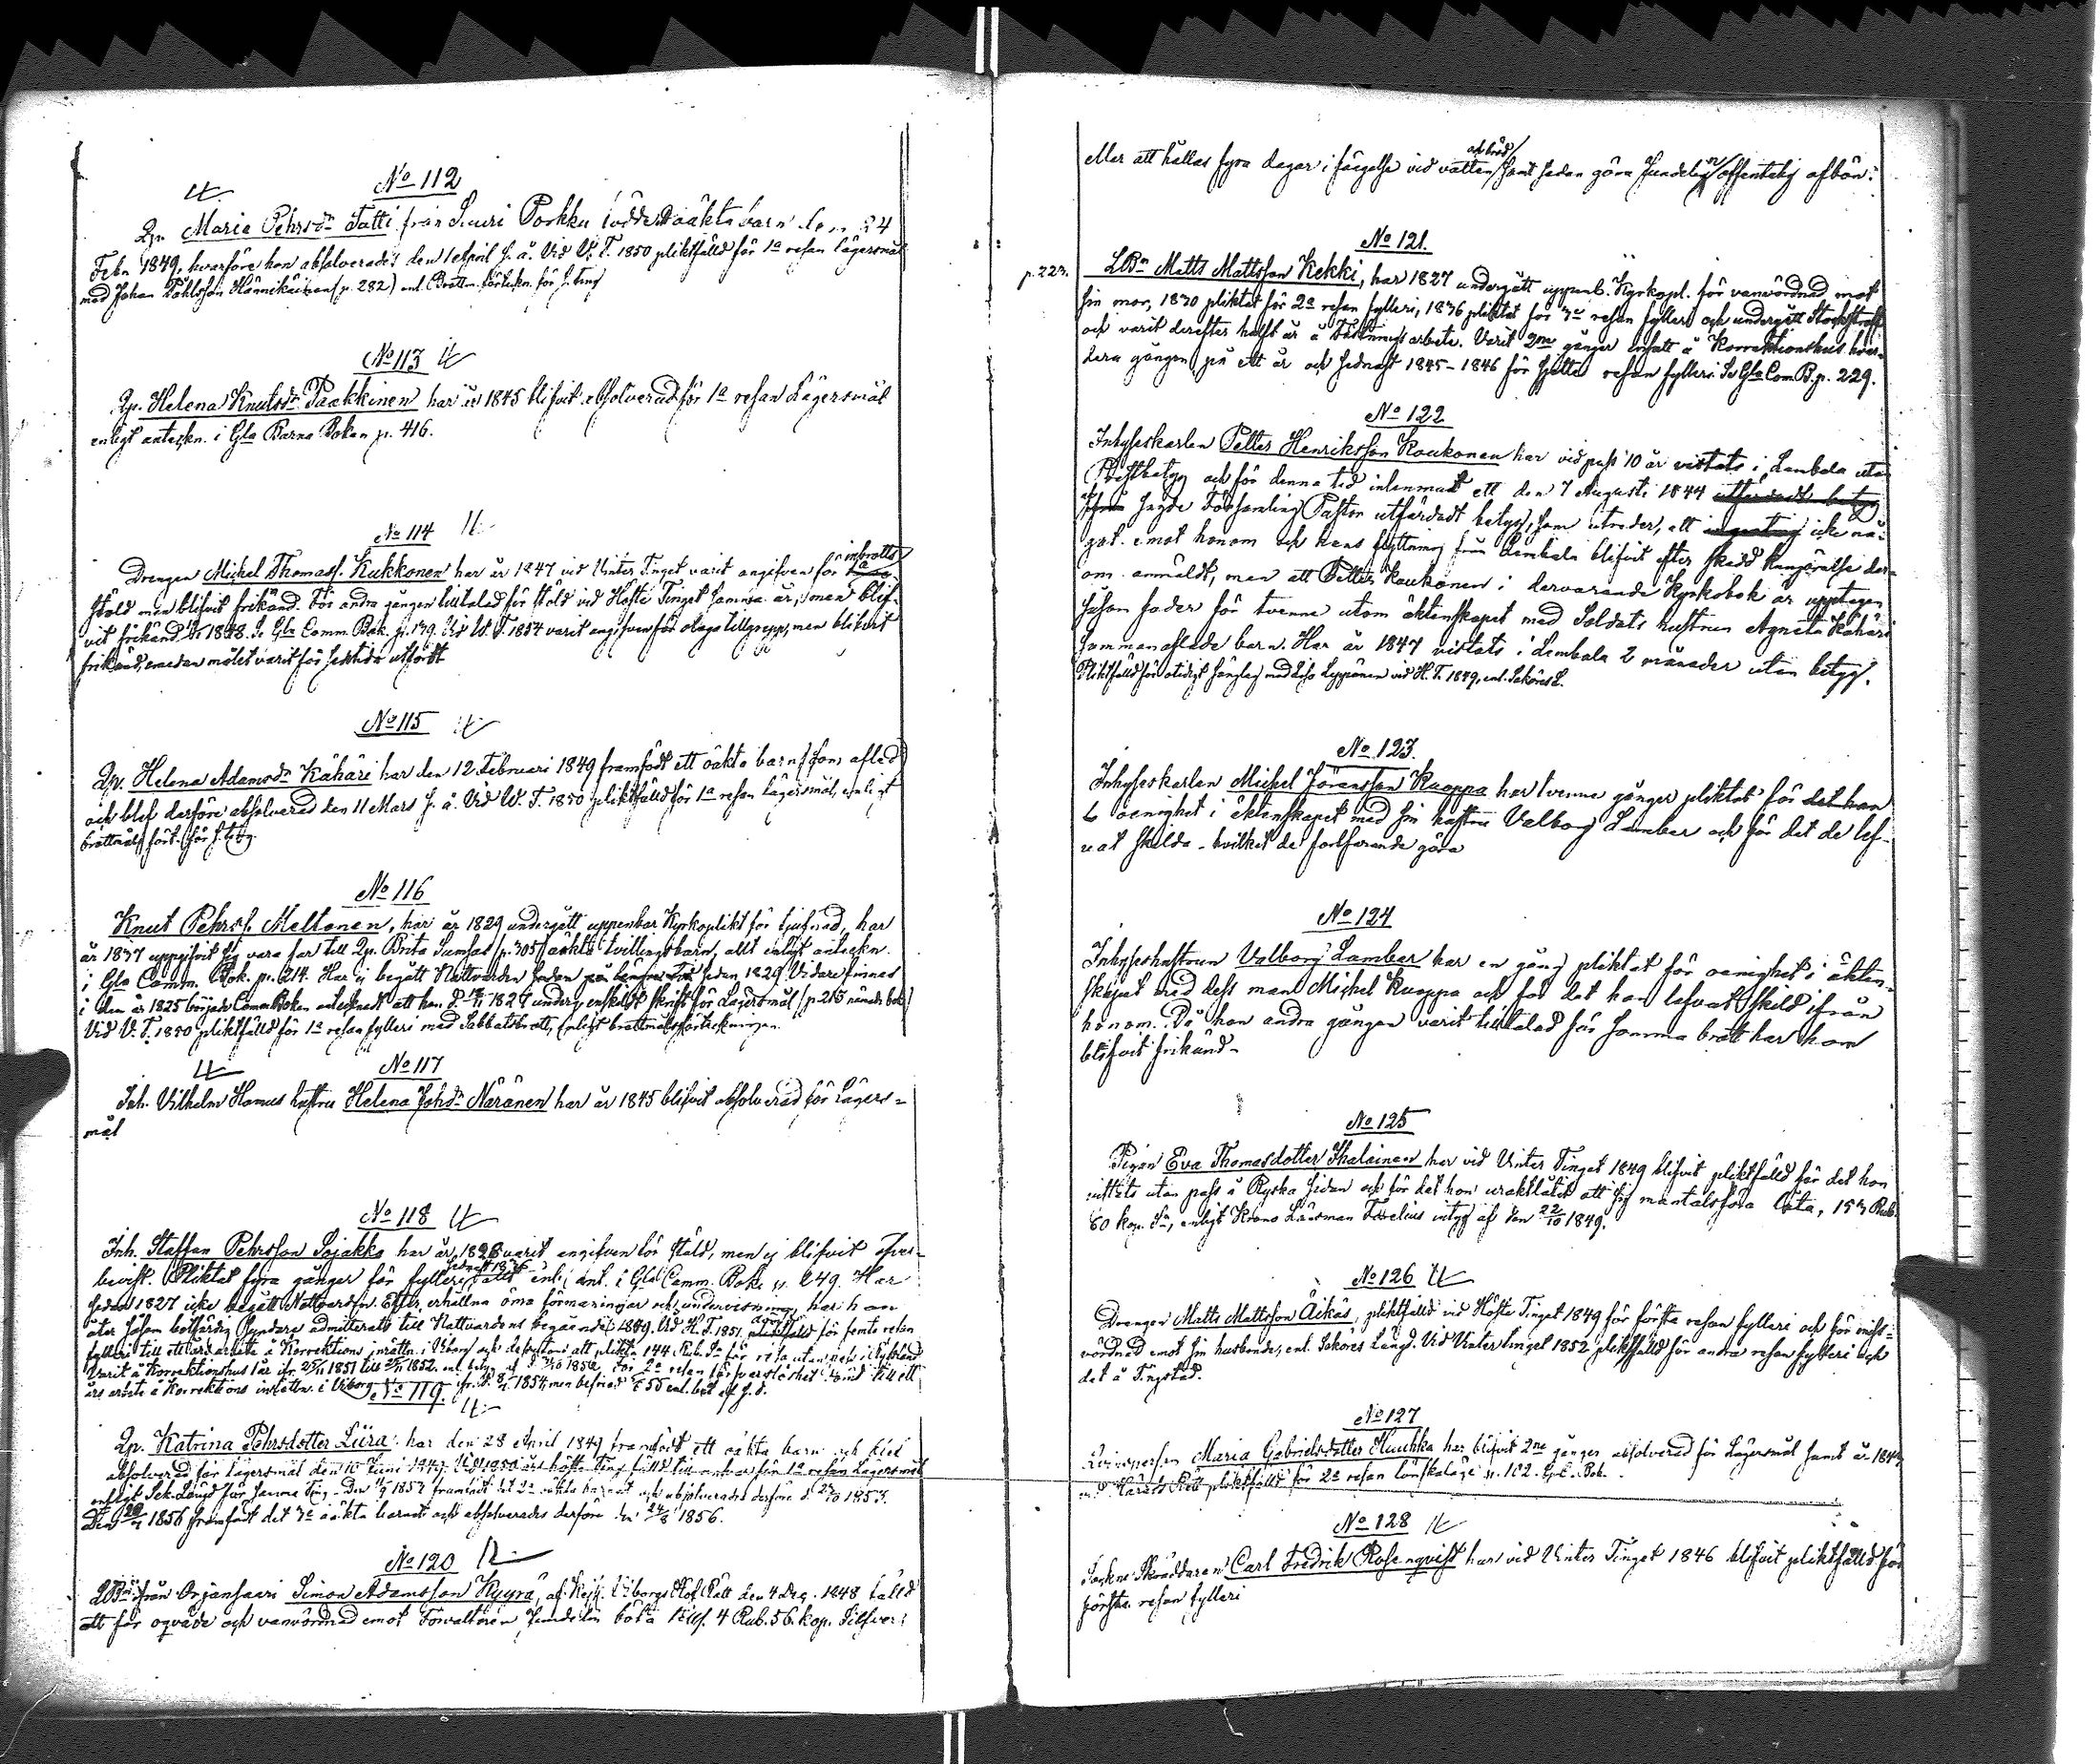 No 112
Qp. Maria Pehrsdr Tatti från Suuri Porkku födde oäkta barn den 24
Febr. 1849, hvarföre hon absolverades den 1 April s. å. Vid V. T. 1850 pliktfälld för 1a resan lägersmål
med Johan Påhlsson Hännikäinen (p. 282) enl. Brottm. förteckn. för s. ting
No 113
Qp. Helena Knutsdr Paakkinen har år 1845 blifvit absolverad för 1a resan Lägersmål
enligt anteckn. i Gla Barna Boken p. 416.
No 114
Drengen Michel Thomass. Kukkonen har år 1847 vid Vinter Tinget varit angifven för inbrotts
stöld men blifvit frikänd. För andra gången tilltalad för stöld vid Höste Tinget samma år, men blif-
vit frikänd. År 1848. Se Gla Comm. Bok. p. 139. Vid W. T. 1854 varit angifven för olaga tillgrepp, men blifvit
frikänd, emedan målet varit för sent utfördt
No 115
Qp. Helena Adamsdr Kähäri har den 12 Februari 1849 framfödt ett oäkta barn, som afled
och blef derföre absolverad den 11 Mars s. å. Vid W. T. 1850 pliktfälld för 1a resan lägersmål, enligt
brottmåls fört. för s. ting.
No 116
Knut Pehrss. Meltonen, har år 1829 undergått uppenbar Kyrkoplikt för tjufnad, har
år 1837 uppgifvit sig vara far till Qp. Brita Sumfas (p. 305) oäkta tvillingsbarn, allt enligt anteckn.
i Gla Comm. Bok. p. 214. Har ej begått Nattvarden sedan 1829. Vidare finnes
i den år 1825 började Comm. Boken antecknadt att han 1827 underg. enskildt skrift för Lägersmål (p. 215 nämde bok)
Vid V. T. 1850 pliktfälld för 1a resan fylleri med Sabbatsbrott, enligt brottmålsförteckningen.
No 117
Inh. Vilhelm Homus hustru Helena Johsdr Näränen har år 1845 blifvit absolverad för Lägers-
mål
No 118
Inh. Staffan Pehrsson Sojakka har år 1828 varit angifven för stöld, men ej blifvit öfver-
bevist. Pliktat fyra gånger för fylleri, sednast allt enl. ant. i Gla Comm. Bok. p. 249. Har
sedan 1827 icke begått Nattvarden. Efter erhållna ömа förmaningar och undervisning har han
åter såsom botfärdig syndare admitterats till Nattvardens begående 1849. Vid H. T. 1851 pliktfälld för femte resan
fylleri till ett års arbete å Korrektions inrättn. i Viborg och dessutom att plikta 144 Rub. Sr för
Varit å Korrektionshus fr. 25/11 1851 till 25/11 1852, enl. betyg För 2a resan försvarslöshet dömd till ett
års arbete å Korrektions inrättn. i Viborg 1854, men befriad enl. bref af s. d.
No 119.
Qp. Katrina Pehrsdotter Liira har den 28 April 1849 framfödt ett oäkta barn och blef
absolverad för lägersmål den 10 Juni 1849. Vid 1850 års höste ting fälld till ansvar för 1a resan Lägersmål
enligt Sak. Längd för samma Ting. Den 1853 framfödt det 2a oäkta barnet och absolverades derföre d. 1853.
Den 1856 framfödt det 3e oäkta barnet och absolverades derföre den 24/8 1856.
No 120
LBn ifrån Orjansaari Simon Adamsson Kyyrä, af Kejs. Viborgs Hof Rätt den 4 Dec. 1848 fälld
att för oqväde och vanvördnad emot Förvaltören Sundelin böta 4 Rub. 56 kop. Silfver
eller att hållas fyra dagar i fängelse vid vatten och bröd samt sedan göra Sundelin offentelig afbön.
No 121.
p. 223. LBn Matts Mattsson Kekki, har 1827 undergått uppenb. Kyrkopl. för vanvördnad mot
sin mor, 1830 pliktat för 2a resan fylleri, 1836 pliktat för 3e resan fylleri och undergått Stockstraff
och varit derefter halft år å Fästningsarbete. Varit 2ne gånger insatt å Korrektionshus hvar-
dera gången på ett år och sednast 1845-1846 för sjette resan fylleri. Se Gla Com. B. p. 229.
No 122
Inhyseskarlen Petter Henriksson Koukonen har vid pass 10 år vistats i Lembala utan
Prestbetyg och för denna tid inlemnat ett den 7 Augusti 1844 utfärdadt betyg
af sagde Församling Pastor utfärdadt betyg, som utreder, att icke nå-
got emot honom och hans flyttning från Lembala blifvit efter skedd kungörelse der-
om anmäldt, men att Petter Koukonen i dervarande Kyrkobok är upptagen
såsom fader för tvenne utom äktenskapet med Soldats hustrun Agneta Kähäri
sammanaflade barn. Har år 1847 vistats i Lembala 2 månader utan betyg.
Pliktfälld för otidigt sänglag med Lisa Leppänen vid H. T. 1849, enl. Saköres L.
No 123.
Inhyseskarlen Michel Göransson Kuoppa har tvenne gånger pliktat för det han
oenighet i äktenskapet med sin hustru Valborg Lamber och för det de lef-
vat skilda - hvilket de fortfarande göra
No 124
Inhyseshustrun Valborg Lamber har en gång pliktat för oenighet i äkten-
skapet med dess man Michel Kuoppa och för det hon lefvat skild ifrån
honom. Då hon andra gången varit tilltalad för samma brott har hon
blifvit frikänd -
No 125
Pigan Eva Thomasdotter Ikalainen har vid Vinter Tinget 1849 blifvit pliktfälld för det hon
vistats utan pass å Ryska sidan och för det hon uraktlåtit att sig mantalsföra låta, 153 Rub.
60 kop. Sr, enligt Krono Länsman Fabelius intyg af den 22/10 1849.
No 126
Drengen Matts Mattsson Äikäs, pliktfälld vid Höste Tinget 1849 för första resan fylleri och för miss-
vördnad emot sin husbonde, enl. Saköres Längd. Vid Vintertinget 1852 pliktfälld för andra resan fylleri och
det å Tingstad.
No 127
Qvinspersen Maria Gabrielsdotter Huuhka har blifvit 2ne gånger absolverad för Lägersmål samt år 1844
vid Härads Rätt pliktfälld för 2a resan lönskaläge p. 102. Bok.
No 128
Sockne Skräddaren Carl Fredrik Rosenqvist har vid Vinter Tinget 1846 blifvit pliktfälld för
första resan fylleri